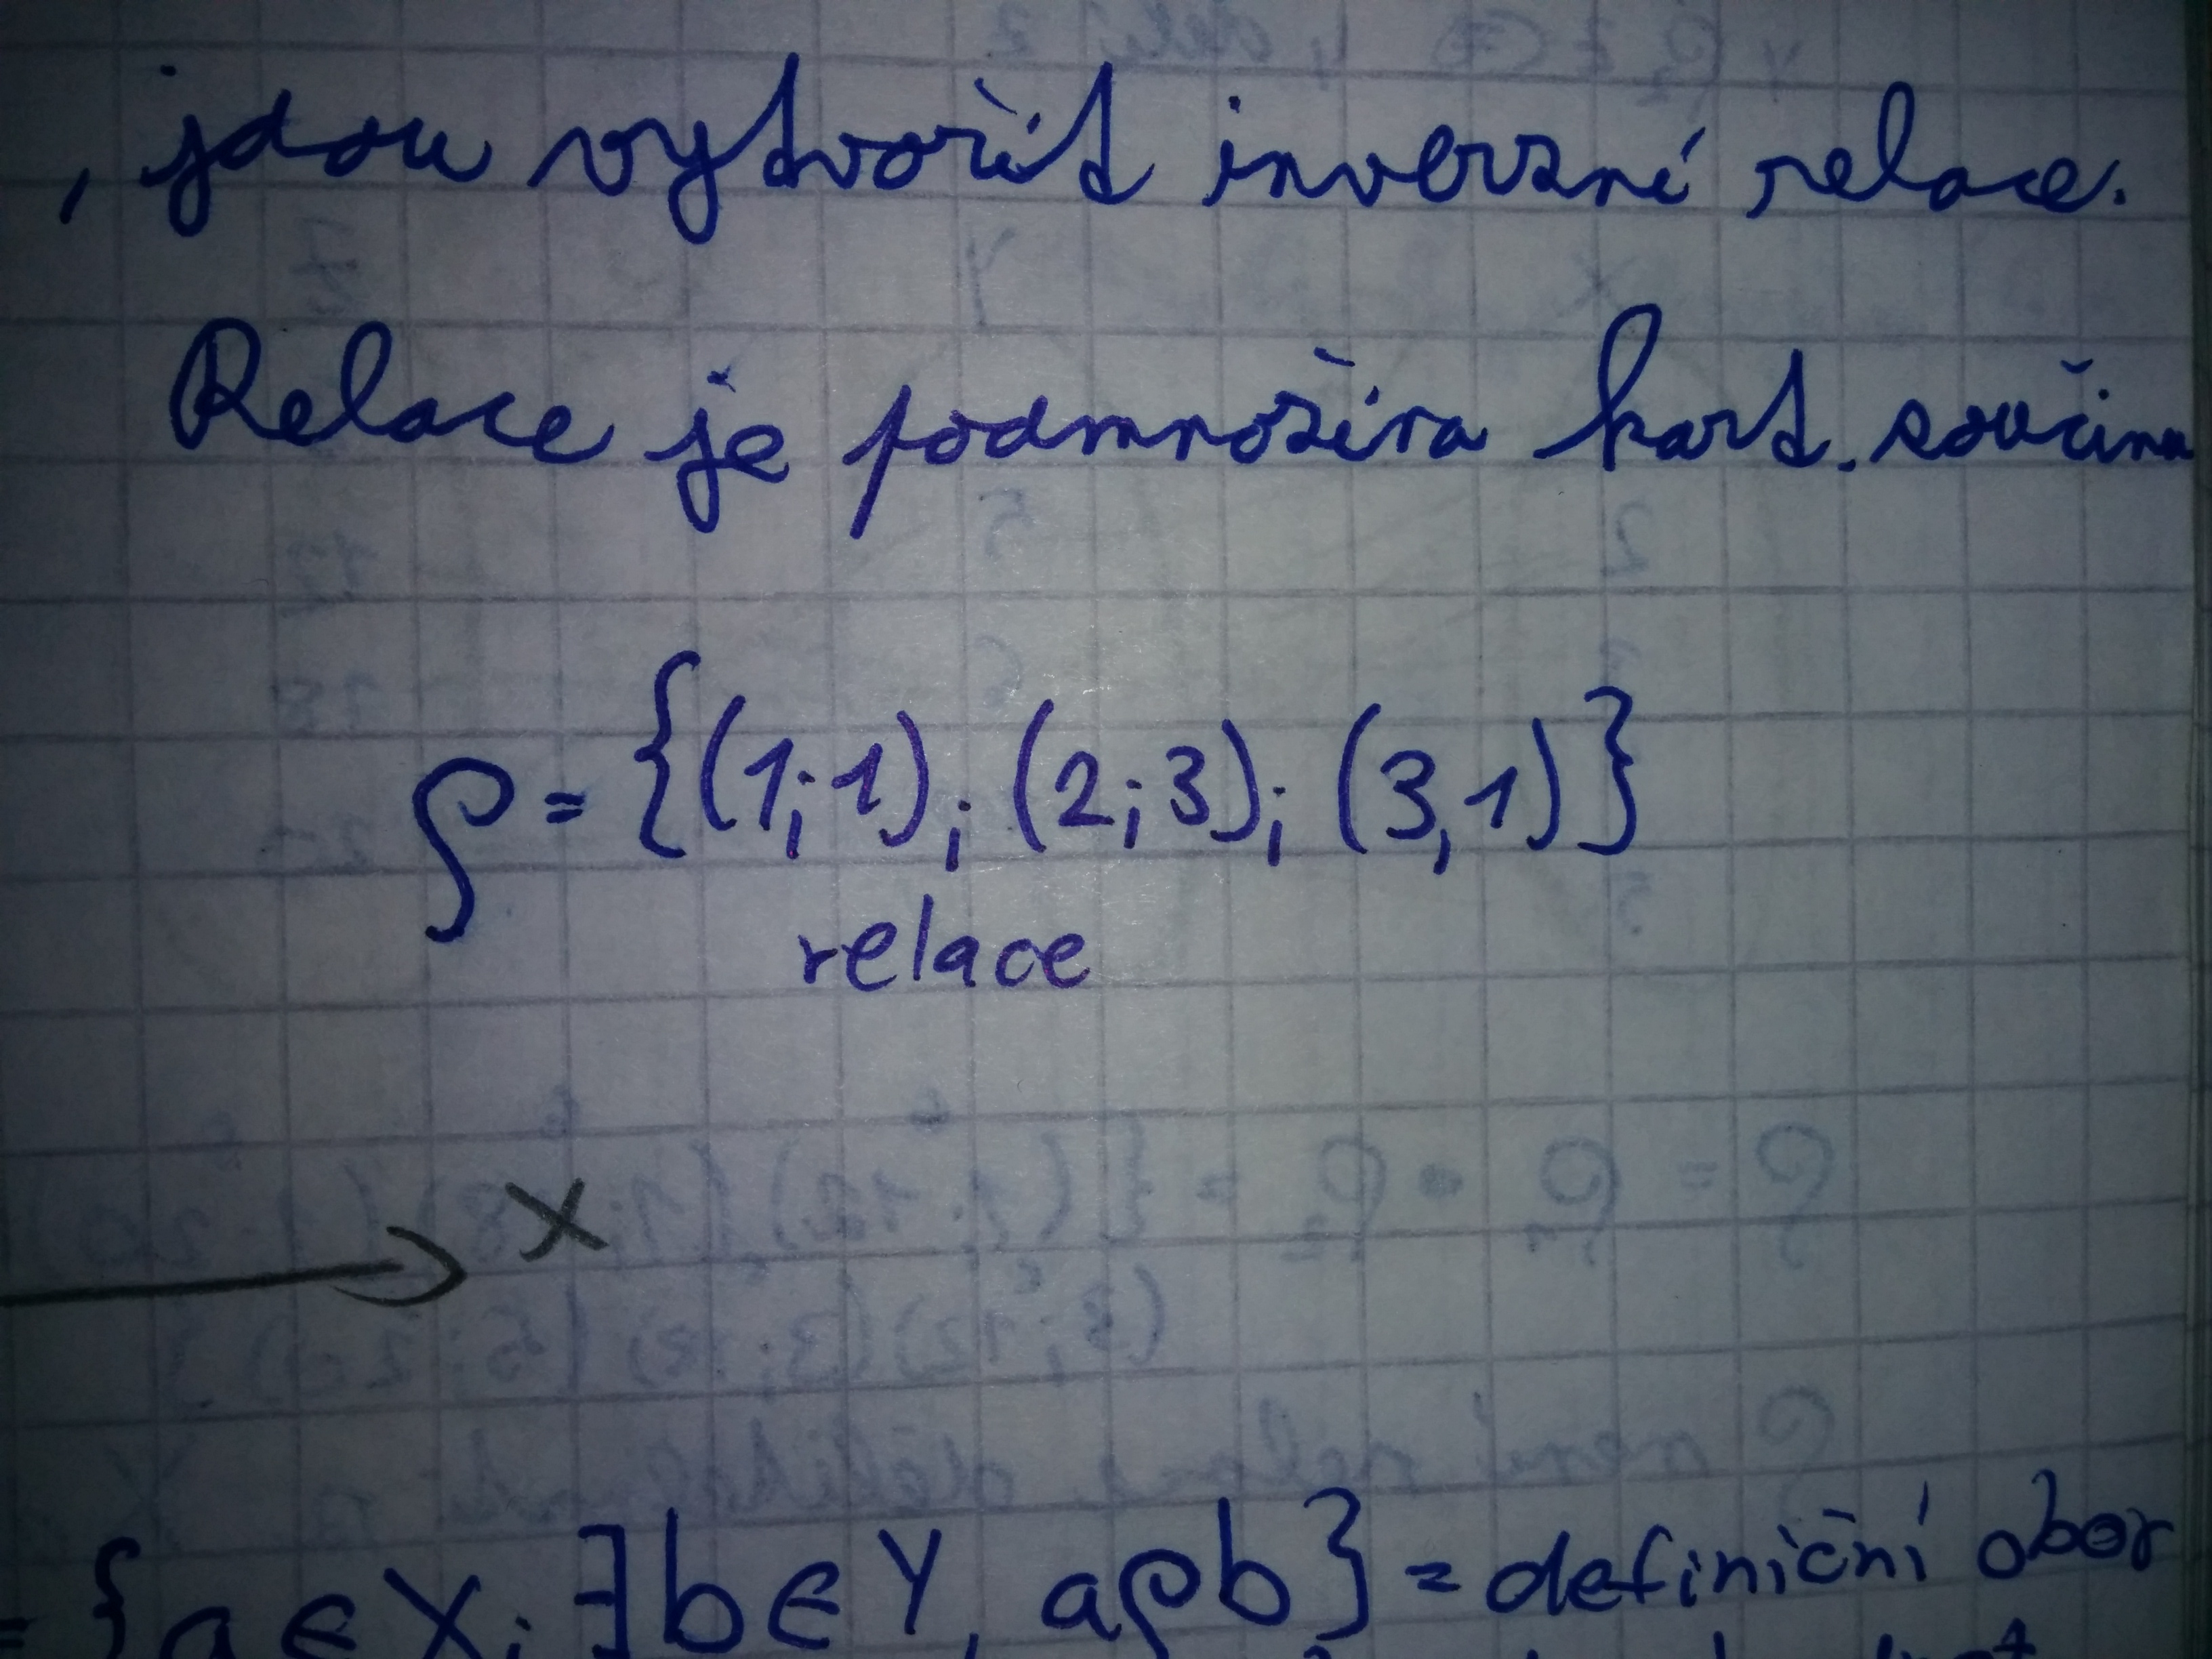 , jdou vytvořit inverzní relace.
Relace je podmnožina kart. součinu
ρ = {(1;1); (2;3); (3,1)}
relace
x
= {a ∈ X; ∃ b ∈ Y, aρb} = definiční obor